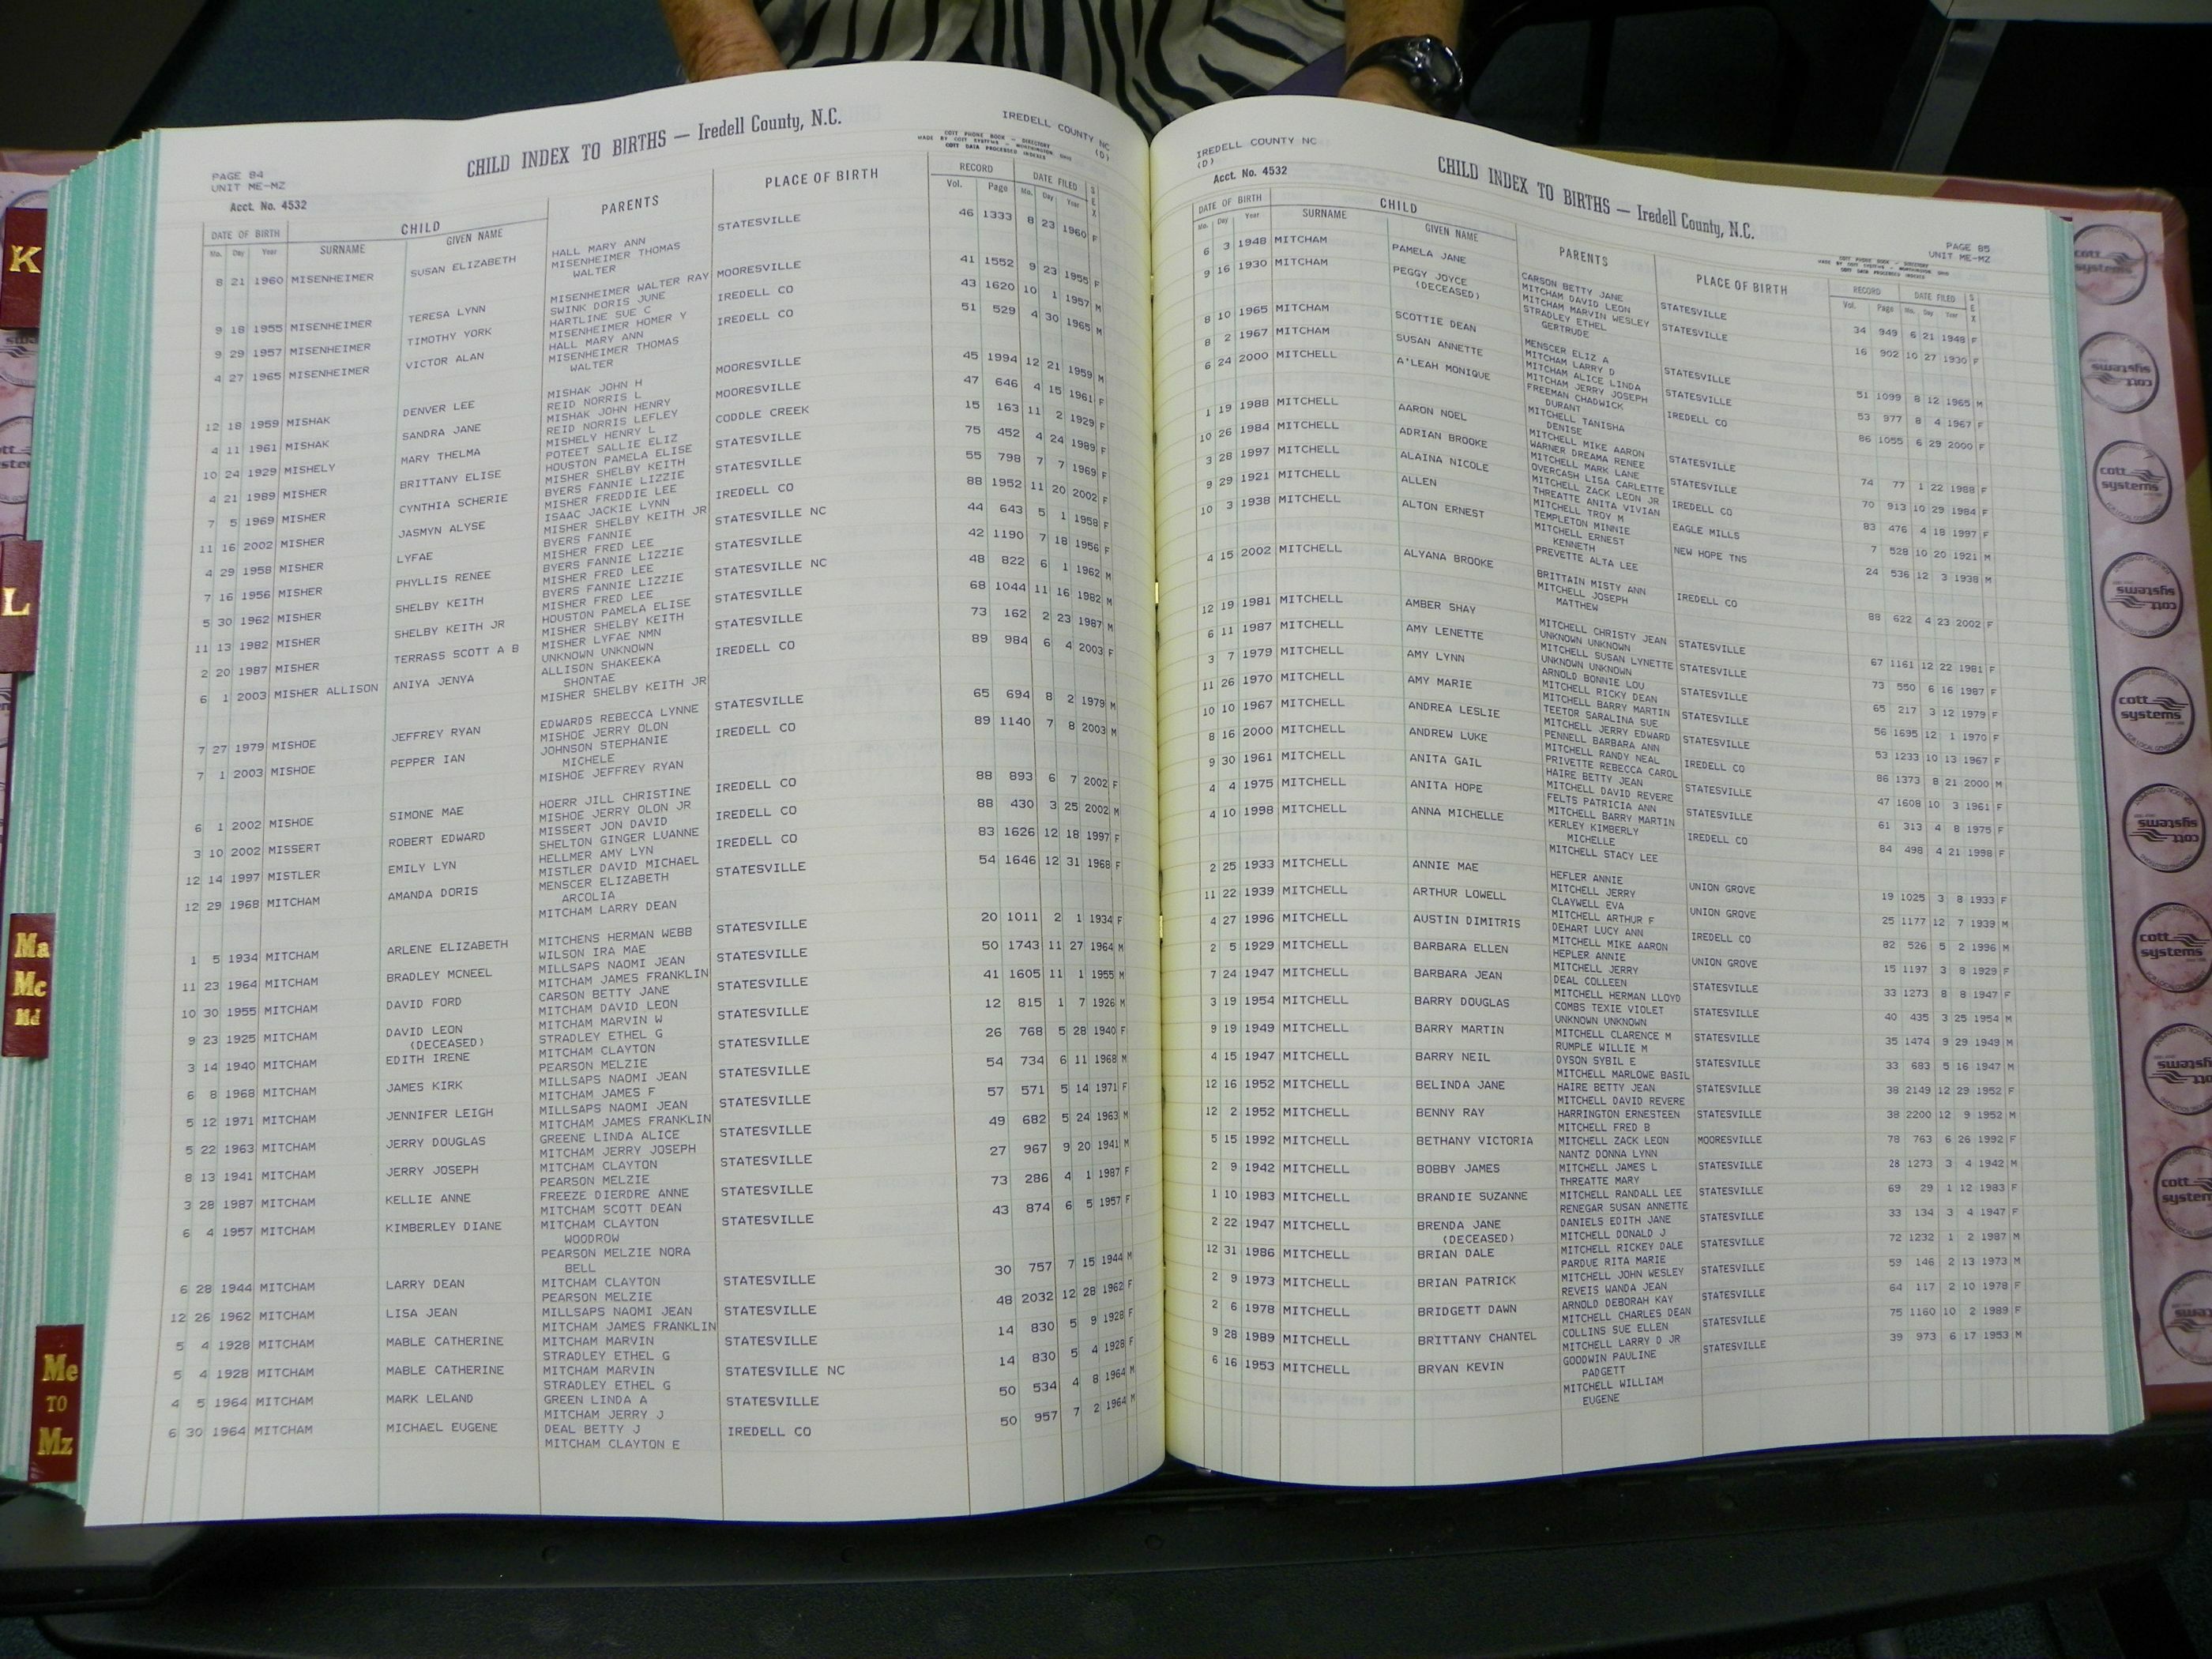 IREDELL COUNTY NC
(D)
CHILD INDEX TO BIRTHS — Iredell County, N.C.
COTT PHONE BOOK — DIRECTORY
MADE BY COTT SYSTEMS — WORTHINGTON OHIO
COTT DATA PROCESSED INDEXES
PAGE 84
UNIT ME-MZ
Acct. No. 4532
DATE OF BIRTH CHILD PARENTS PLACE OF BIRTH RECORD DATE FILED SEX
Mo. Day Year SURNAME GIVEN NAME Vol. Page Mo. Day Year
8 21 1960 MISENHEIMER SUSAN ELIZABETH HALL MARY ANN STATESVILLE 46 1333 8 23 1960 F
MISENHEIMER THOMAS
WALTER
9 18 1955 MISENHEIMER TERESA LYNN MISENHEIMER WALTER RAY MOORESVILLE 41 1552 9 23 1955 F
SWINK DORIS JUNE
9 29 1957 MISENHEIMER TIMOTHY YORK HARTLINE SUE C IREDELL CO 43 1620 10 1 1957 M
MISENHEIMER HOMER Y
4 27 1965 MISENHEIMER VICTOR ALAN HALL MARY ANN IREDELL CO 51 529 4 30 1965 M
MISENHEIMER THOMAS
WALTER
12 18 1959 MISHAK DENVER LEE MISHAK JOHN H MOORESVILLE 45 1994 12 21 1959 M
REID NORRIS L
4 11 1961 MISHAK SANDRA JANE MISHAK JOHN HENRY MOORESVILLE 47 646 4 15 1961 F
REID NORRIS LEFLEY
10 24 1929 MISHELY MARY THELMA MISHELY HENRY L CODDLE CREEK 15 163 11 2 1929 F
POTEET SALLIE ELIZ
4 21 1989 MISHER BRITTANY ELISE HOUSTON PAMELA ELISE STATESVILLE 75 452 4 24 1989 F
MISHER SHELBY KEITH
7 5 1969 MISHER CYNTHIA SCHERIE BYERS FANNIE LIZZIE STATESVILLE 55 798 7 7 1969 F
MISHER FREDDIE LEE
11 16 2002 MISHER JASMYN ALYSE ISAAC JACKIE LYNN IREDELL CO 88 1952 11 20 2002 F
MISHER SHELBY KEITH JR
4 29 1958 MISHER LYFAE BYERS FANNIE STATESVILLE NC 44 643 5 1 1958 F
MISHER FRED LEE
7 16 1956 MISHER PHYLLIS RENEE BYERS FANNIE LIZZIE STATESVILLE 42 1190 7 18 1956 F
MISHER FRED LEE
5 30 1962 MISHER SHELBY KEITH BYERS FANNIE LIZZIE STATESVILLE NC 48 822 6 1 1962 M
MISHER FRED LEE
11 13 1982 MISHER SHELBY KEITH JR HOUSTON PAMELA ELISE STATESVILLE 68 1044 11 16 1982 M
MISHER SHELBY KEITH
2 20 1987 MISHER TERRASS SCOTT A B MISHER LYFAE NMN STATESVILLE 73 162 2 23 1987 M
UNKNOWN UNKNOWN
6 1 2003 MISHER ALLISON ANIYA JENYA ALLISON SHAKEEKA IREDELL CO 89 984 6 4 2003 F
SHONTAE
MISHER SHELBY KEITH JR
7 27 1979 MISHOE JEFFREY RYAN EDWARDS REBECCA LYNNE STATESVILLE 65 694 8 2 1979 M
MISHOE JERRY OLON
7 1 2003 MISHOE PEPPER IAN JOHNSON STEPHANIE IREDELL CO 89 1140 7 8 2003 M
MICHELE
MISHOE JEFFREY RYAN
6 1 2002 MISHOE SIMONE MAE HOERR JILL CHRISTINE IREDELL CO 88 893 6 7 2002 F
MISHOE JERRY OLON JR
3 10 2002 MISSERT ROBERT EDWARD MISSERT JON DAVID IREDELL CO 88 430 3 25 2002 M
SHELTON GINGER LUANNE
12 14 1997 MISTLER EMILY LYN HELLMER AMY LYN IREDELL CO 83 1626 12 18 1997 F
MISTLER DAVID MICHAEL
12 29 1968 MITCHAM AMANDA DORIS MENSCER ELIZABETH STATESVILLE 54 1646 12 31 1968 F
ARCOLIA
MITCHAM LARRY DEAN
1 5 1934 MITCHAM ARLENE ELIZABETH MITCHENS HERMAN WEBB STATESVILLE 20 1011 2 1 1934 F
WILSON IRA MAE
11 23 1964 MITCHAM BRADLEY MCNEEL MILLSAPS NAOMI JEAN STATESVILLE 50 1743 11 27 1964 M
MITCHAM JAMES FRANKLIN
10 30 1955 MITCHAM DAVID FORD CARSON BETTY JANE STATESVILLE 41 1605 11 1 1955 M
MITCHAM DAVID LEON
9 23 1925 MITCHAM DAVID LEON MITCHAM MARVIN W STATESVILLE 12 815 1 7 1926 M
(DECEASED) STRADLEY ETHEL G
3 14 1940 MITCHAM EDITH IRENE MITCHAM CLAYTON STATESVILLE 26 768 5 28 1940 F
PEARSON MELZIE
6 8 1968 MITCHAM JAMES KIRK MILLSAPS NAOMI JEAN STATESVILLE 54 734 6 11 1968 M
MITCHAM JAMES F
5 12 1971 MITCHAM JENNIFER LEIGH MILLSAPS NAOMI JEAN STATESVILLE 57 571 5 14 1971 F
MITCHAM JAMES FRANKLIN
5 22 1963 MITCHAM JERRY DOUGLAS GREENE LINDA ALICE STATESVILLE 49 682 5 24 1963 M
MITCHAM JERRY JOSEPH
8 13 1941 MITCHAM JERRY JOSEPH MITCHAM CLAYTON STATESVILLE 27 967 9 20 1941 M
PEARSON MELZIE
3 28 1987 MITCHAM KELLIE ANNE FREEZE DIERDRE ANNE STATESVILLE 73 286 4 1 1987 F
MITCHAM SCOTT DEAN
6 4 1957 MITCHAM KIMBERLEY DIANE MITCHAM CLAYTON STATESVILLE 43 874 6 5 1957 F
WOODROW
PEARSON MELZIE NORA
BELL
6 28 1944 MITCHAM LARRY DEAN MITCHAM CLAYTON STATESVILLE 30 757 7 15 1944 M
PEARSON MELZIE
12 26 1962 MITCHAM LISA JEAN MILLSAPS NAOMI JEAN STATESVILLE 48 2032 12 28 1962 F
MITCHAM JAMES FRANKLIN
5 4 1928 MITCHAM MABLE CATHERINE MITCHAM MARVIN STATESVILLE 14 830 5 9 1928 F
STRADLEY ETHEL G
5 4 1928 MITCHAM MABLE CATHERINE MITCHAM MARVIN STATESVILLE NC 14 830 5 4 1928 F
STRADLEY ETHEL G
4 5 1964 MITCHAM MARK LELAND GREEN LINDA A STATESVILLE 50 534 4 8 1964 M
MITCHAM JERRY J
6 30 1964 MITCHAM MICHAEL EUGENE DEAL BETTY J IREDELL CO 50 957 7 2 1964 M
MITCHAM CLAYTON E
IREDELL COUNTY NC
(D)
Acct. No. 4532
CHILD INDEX TO BIRTHS — Iredell County, N.C.
PAGE 85
UNIT ME-MZ
COTT PHONE BOOK — DIRECTORY
MADE BY COTT SYSTEMS — WORTHINGTON OHIO
COTT DATA PROCESSED INDEXES
DATE OF BIRTH CHILD PARENTS PLACE OF BIRTH RECORD DATE FILED SEX
Mo. Day Year SURNAME GIVEN NAME Vol. Page Mo. Day Year
6 3 1948 MITCHAM PAMELA JANE CARSON BETTY JANE STATESVILLE 34 949 6 21 1948 F
MITCHAM DAVID LEON
9 16 1930 MITCHAM PEGGY JOYCE MITCHAM MARVIN WESLEY STATESVILLE 16 902 10 27 1930 F
(DECEASED) STRADLEY ETHEL
GERTRUDE
8 10 1965 MITCHAM SCOTTIE DEAN MENSCER ELIZ A STATESVILLE 51 1099 8 12 1965 M
MITCHAM LARRY D
8 2 1967 MITCHAM SUSAN ANNETTE MITCHAM ALICE LINDA STATESVILLE 53 977 8 4 1967 F
MITCHAM JERRY JOSEPH
6 24 2000 MITCHELL A'LEAH MONIQUE FREEMAN CHADWICK IREDELL CO 86 1055 6 29 2000 F
DURANT
MITCHELL TANISHA
DENISE
1 19 1988 MITCHELL AARON NOEL MITCHELL MIKE AARON STATESVILLE 74 77 1 22 1988 F
WARNER DREAMA RENEE
10 26 1984 MITCHELL ADRIAN BROOKE MITCHELL MARK LANE STATESVILLE 70 913 10 29 1984 F
OVERCASH LISA CARLETTE
3 28 1997 MITCHELL ALAINA NICOLE MITCHELL ZACK LEON JR IREDELL CO 83 476 4 18 1997 F
THREATTE ANITA VIVIAN
9 29 1921 MITCHELL ALLEN MITCHELL TROY M EAGLE MILLS 7 528 10 20 1921 M
TEMPLETON MINNIE
10 3 1938 MITCHELL ALTON ERNEST MITCHELL ERNEST NEW HOPE TNS 24 536 12 3 1938 M
KENNETH
PREVETTE ALTA LEE
4 15 2002 MITCHELL ALYANA BROOKE BRITTAIN MISTY ANN IREDELL CO 88 622 4 23 2002 F
MITCHELL JOSEPH
MATTHEW
12 19 1981 MITCHELL AMBER SHAY MITCHELL CHRISTY JEAN STATESVILLE 67 1161 12 22 1981 F
UNKNOWN UNKNOWN
6 11 1987 MITCHELL AMY LENETTE MITCHELL SUSAN LYNETTE STATESVILLE 73 550 6 16 1987 F
UNKNOWN UNKNOWN
3 7 1979 MITCHELL AMY LYNN ARNOLD BONNIE LOU STATESVILLE 65 217 3 12 1979 F
MITCHELL RICKY DEAN
11 26 1970 MITCHELL AMY MARIE MITCHELL BARRY MARTIN STATESVILLE 56 1695 12 1 1970 F
TEETOR SARALINA SUE
10 10 1967 MITCHELL ANDREA LESLIE MITCHELL JERRY EDWARD STATESVILLE 53 1233 10 13 1967 F
PENNELL BARBARA ANN
8 16 2000 MITCHELL ANDREW LUKE MITCHELL RANDY NEAL IREDELL CO 86 1373 8 21 2000 M
PRIVETTE REBECCA CAROL
9 30 1961 MITCHELL ANITA GAIL HAIRE BETTY JEAN STATESVILLE 47 1608 10 3 1961 F
MITCHELL DAVID REVERE
4 4 1975 MITCHELL ANITA HOPE FELTS PATRICIA ANN STATESVILLE 61 313 4 8 1975 F
MITCHELL BARRY MARTIN
4 10 1998 MITCHELL ANNA MICHELLE KERLEY KIMBERLY IREDELL CO 84 498 4 21 1998 F
MICHELLE
MITCHELL STACY LEE
2 25 1933 MITCHELL ANNIE MAE HEFLER ANNIE UNION GROVE 19 1025 3 8 1933 F
MITCHELL JERRY
11 22 1939 MITCHELL ARTHUR LOWELL CLAYWELL EVA UNION GROVE 25 1177 12 7 1939 M
MITCHELL ARTHUR F
4 27 1996 MITCHELL AUSTIN DIMITRIS DEHART LUCY ANN IREDELL CO 82 526 5 2 1996 M
MITCHELL MIKE AARON
2 5 1929 MITCHELL BARBARA ELLEN HEPLER ANNIE UNION GROVE 15 1197 3 8 1929 F
MITCHELL JERRY
7 24 1947 MITCHELL BARBARA JEAN DEAL COLLEEN STATESVILLE 33 1273 8 8 1947 F
MITCHELL HERMAN LLOYD
3 19 1954 MITCHELL BARRY DOUGLAS COMBS TEXIE VIOLET STATESVILLE 40 435 3 25 1954 M
UNKNOWN UNKNOWN
9 19 1949 MITCHELL BARRY MARTIN MITCHELL CLARENCE M STATESVILLE 35 1474 9 29 1949 M
RUMPLE WILLIE M
4 15 1947 MITCHELL BARRY NEIL DYSON SYBIL E STATESVILLE 33 683 5 16 1947 M
MITCHELL MARLOWE BASIL
12 16 1952 MITCHELL BELINDA JANE HAIRE BETTY JEAN STATESVILLE 38 2149 12 29 1952 F
MITCHELL DAVID REVERE
12 2 1952 MITCHELL BENNY RAY HARRINGTON ERNESTEEN STATESVILLE 38 2200 12 9 1952 M
MITCHELL FRED B
5 15 1992 MITCHELL BETHANY VICTORIA MITCHELL ZACK LEON MOORESVILLE 78 763 6 26 1992 F
NANTZ DONNA LYNN
2 9 1942 MITCHELL BOBBY JAMES MITCHELL JAMES L STATESVILLE 28 1273 3 4 1942 M
THREATTE MARY
1 10 1983 MITCHELL BRANDIE SUZANNE MITCHELL RANDALL LEE STATESVILLE 69 29 1 12 1983 F
RENEGAR SUSAN ANNETTE
2 22 1947 MITCHELL BRENDA JANE DANIELS EDITH JANE STATESVILLE 33 134 3 4 1947 F
(DECEASED) MITCHELL DONALD J
12 31 1986 MITCHELL BRIAN DALE MITCHELL RICKEY DALE STATESVILLE 72 1232 1 2 1987 M
PARDUE RITA MARIE
2 9 1973 MITCHELL BRIAN PATRICK MITCHELL JOHN WESLEY STATESVILLE 59 146 2 13 1973 M
REVEIS WANDA JEAN
2 6 1978 MITCHELL BRIDGETT DAWN ARNOLD DEBORAH KAY STATESVILLE 64 117 2 10 1978 F
MITCHELL CHARLES DEAN
9 28 1989 MITCHELL BRITTANY CHANTEL COLLINS SUE ELLEN STATESVILLE 75 1160 10 2 1989 F
MITCHELL LARRY D JR
6 16 1953 MITCHELL BRYAN KEVIN GOODWIN PAULINE STATESVILLE 39 973 6 17 1953 M
PADGETT
MITCHELL WILLIAM
EUGENE
K
L
Ma
Mc
Md
Me
TO
Mz
cott
systems
cott
systems
cott
systems
cott
systems
cott
systems
cott
systems
cott
systems
cott
systems
cott
systems